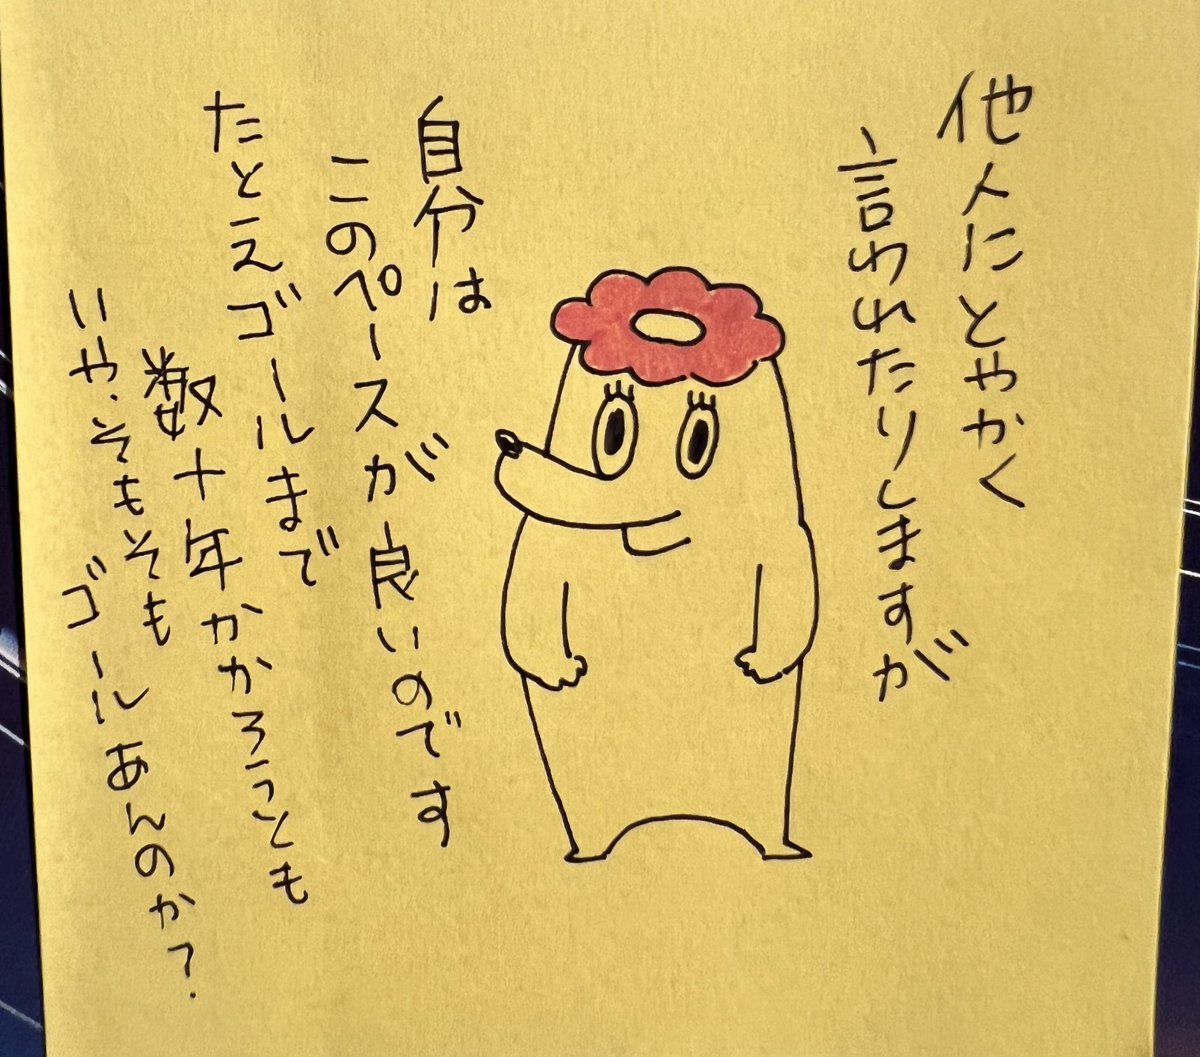 他人にとやかく
言われたりしますが
自分は
このペースが良いのです
たとえゴールまで
数十年かかろうとも
いや、そもそも
ゴールあんのか?